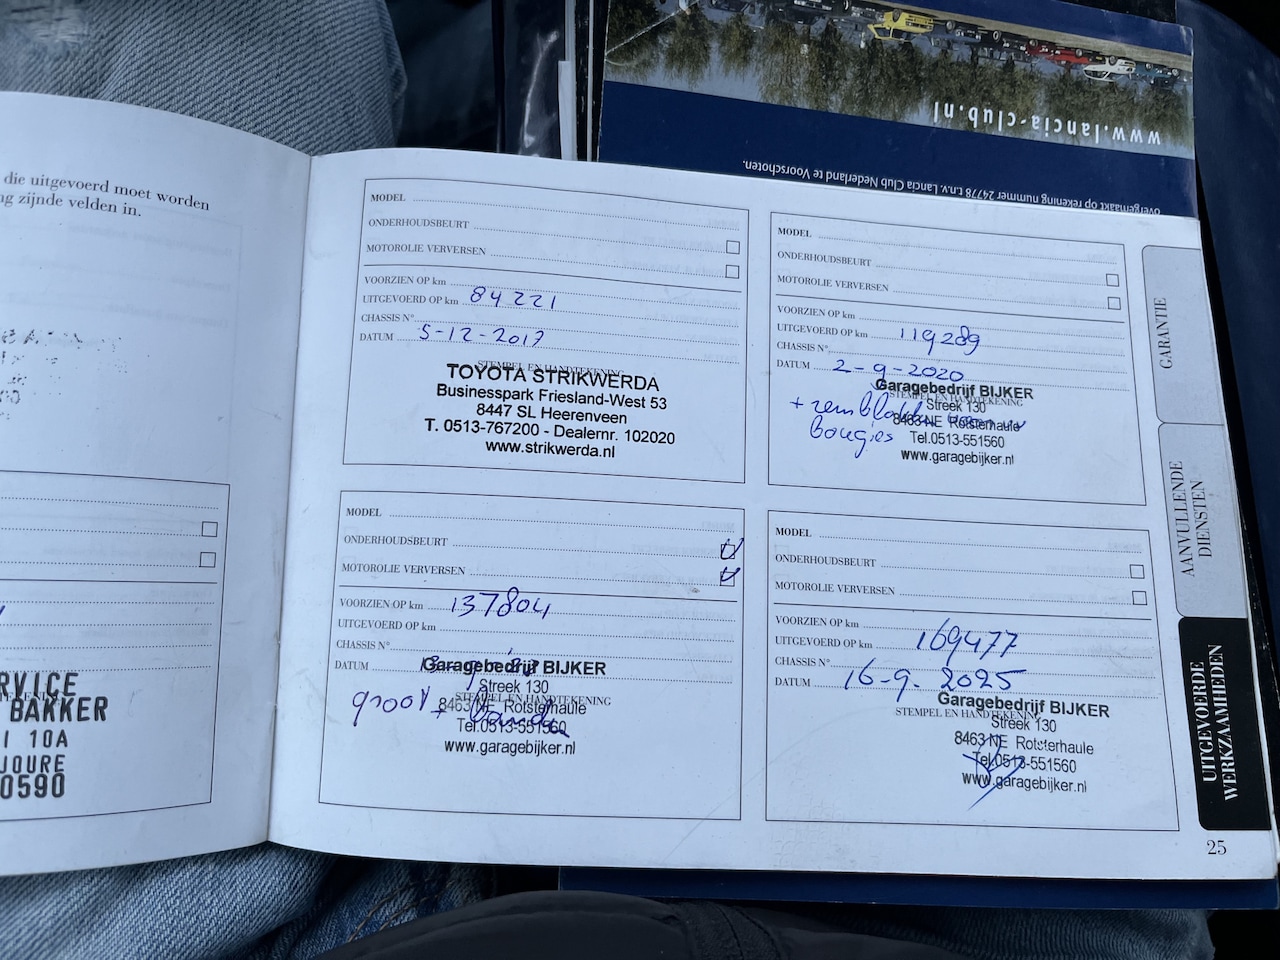 www.lancia-club.nl
overgemaakt op rekening nummer 24778 t.n.v. Lancia Club Nederland te Voorschoten.
die uitgevoerd moet worden
zijnde velden in.
RVICE
BAKKER
I 10A
JOURE
0590
MODEL
ONDERHOUDSBEURT
MOTOROLIE VERVERSEN
VOORZIEN OP km
UITGEVOERD OP km 84221
CHASSIS N°
DATUM 5-12-2017
STEMPEL EN HANDTEKENING
TOYOTA STRIKWERDA
Businesspark Friesland-West 53
8447 SL Heerenveen
T. 0513-767200 - Dealernr. 102020
www.strikwerda.nl
MODEL
ONDERHOUDSBEURT
MOTOROLIE VERVERSEN
VOORZIEN OP km
UITGEVOERD OP km 119289
CHASSIS N°
DATUM 2-9-2020
Garagebedrijf BIJKER
STEMPEL EN HANDTEKENING
Streek 130
+ remblokken
8463 NE Rotsterhaule
bougies
Tel.0513-551560
www.garagebijker.nl
MODEL
ONDERHOUDSBEURT
MOTOROLIE VERVERSEN
VOORZIEN OP km 137804
UITGEVOERD OP km
CHASSIS N°
DATUM
Garagebedrijf BIJKER
Streek 130
STEMPEL EN HANDTEKENING
groot +
8463 NE Rotsterhaule
Tel.0513-551560
www.garagebijker.nl
MODEL
ONDERHOUDSBEURT
MOTOROLIE VERVERSEN
VOORZIEN OP km
UITGEVOERD OP km 169477
CHASSIS N°
DATUM 16-9-2025
Garagebedrijf BIJKER
STEMPEL EN HANDTEKENING
Streek 130
8463 NE Rotsterhaule
Tel.0513-551560
www.garagebijker.nl
GARANTIE
AANVULLENDE
DIENSTEN
UITGEVOERDE
WERKZAAMHEDEN
25